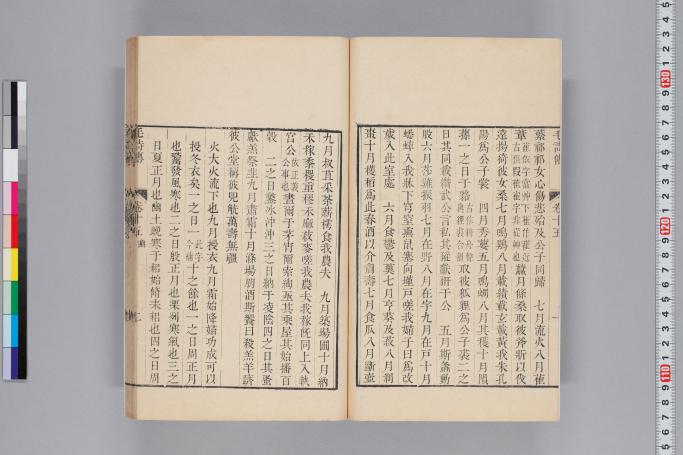 毛詩傳 卷十五 一
蘩祁祁女心傷悲殆及公子同歸 七月流火八月萑
葦 蠶月條桑取彼斧斨以伐
遠揚猗彼女桑七月鳴鵙八月載績載玄載黃我朱孔
陽爲公子裳 四月秀葽五月鳴蜩八月其穫十月隕
蘀一之日于貉 取彼狐貍爲公子裘二之
日其同載纘武公言私其豵獻豜于公 五月斯螽動
股六月莎雞振羽七月在野八月在宇九月在戶十月
蟋蟀入我牀下穹窒熏鼠塞向墐戶嗟我婦子曰爲改
歲入此室處 六月食鬱及薁七月亨葵及菽八月剝
棗十月穫稻爲此春酒以介眉壽七月食瓜八月斷壺
九月叔苴采荼薪樗食我農夫 九月築場圃十月納
禾稼黍稷重穋禾麻菽麥嗟我農夫我稼旣同上入執
宮公 晝爾于茅宵爾索綯亟其乘屋其始播百
穀 二之日鑿冰沖沖三之日納于凌陰四之日其蚤
獻羔祭韭九月肅霜十月滌場朋酒斯饗曰殺羔羊躋
彼公堂稱彼兕觥萬壽無疆
火大火流下也九月授衣九月霜始降婦功成可以
授冬衣矣一之日 十之餘也一之日周正月
也觱發風寒也二之日殷正月也栗列寒氣也三之
日夏正月也豳土晚寒于耜始脩耒耜也四之日周